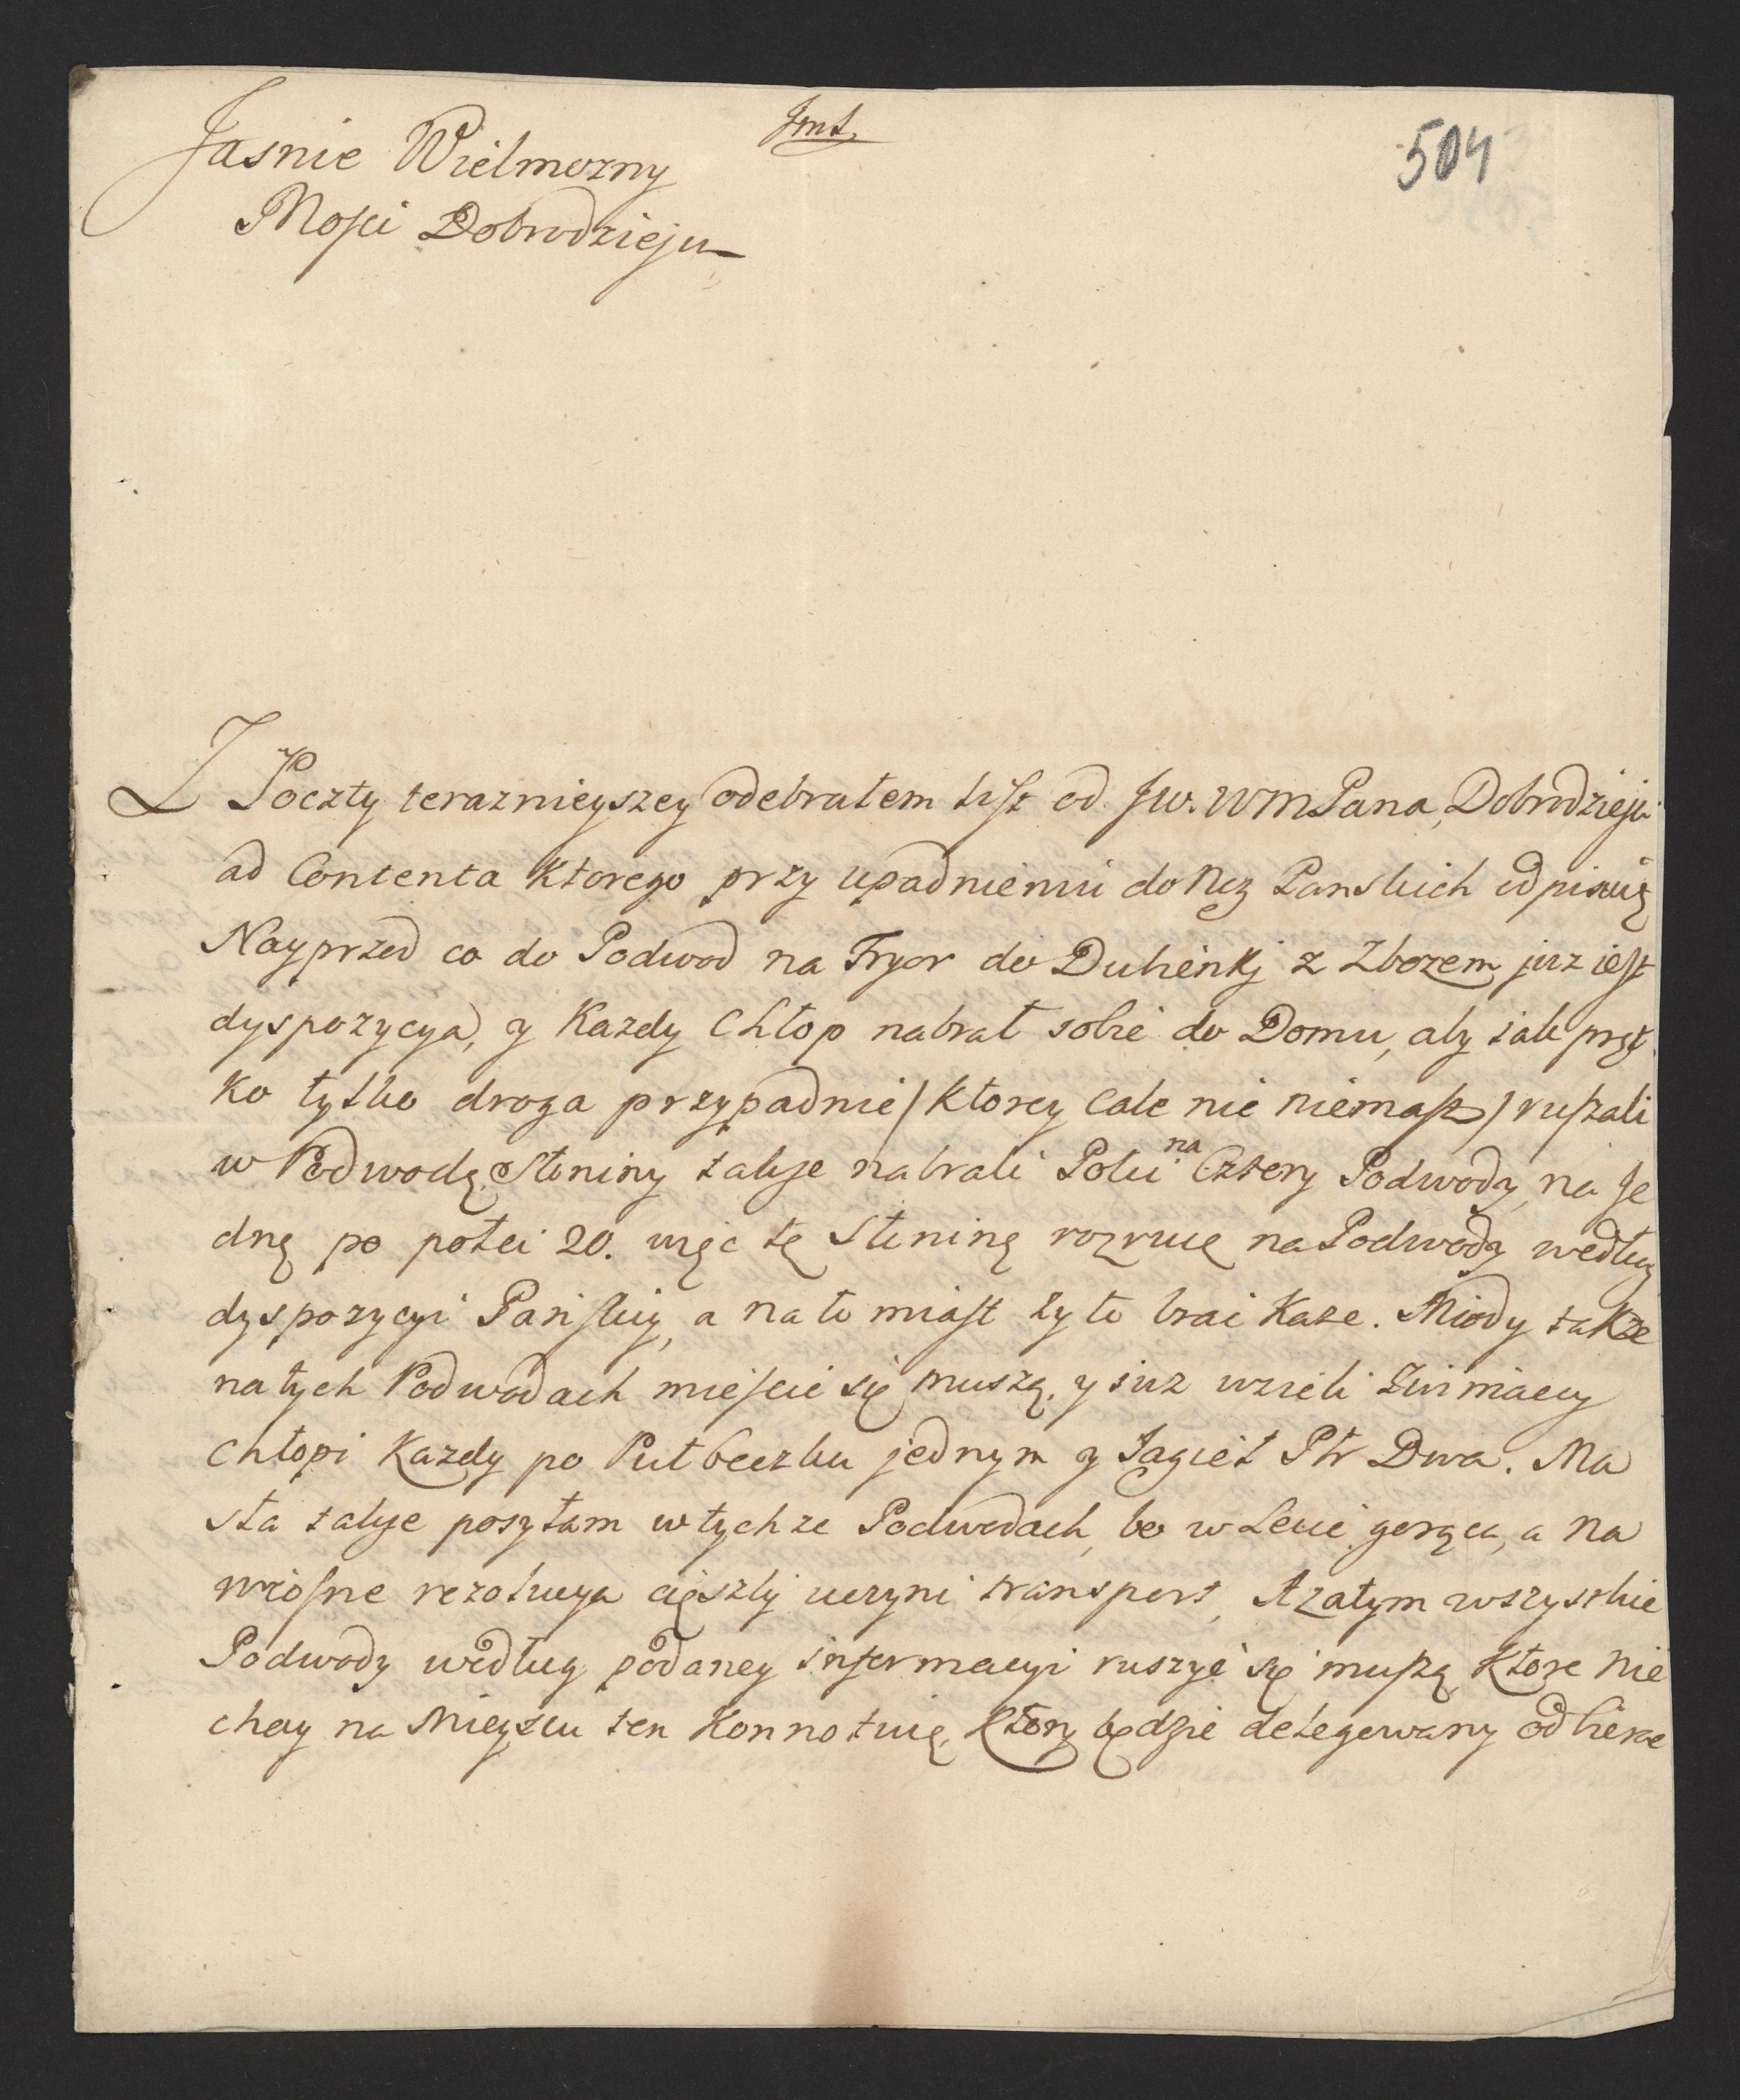 Jmt
504
Jasnie Wielmozny
Mosci Dobrodzieju
Z Poczty teraznieyszey odebrałem list od Jw. WMPana Dobrodzieja
ad Contenta ktorego przy upadnieniu do Nog Panskich odpisuię
Nayprzed co do Podwod na Fryor do Dubienkj z Zbozem, juz iest
dyspozycya, y Kazdy Chłop nabrał sobie do Domu, aby iak pręt
ko tylko droga przypadnie / ktorey Cale nie niemasz / ruszali
w Podwodę. Słoniny takze nabrali Polci na Cztery Podwody, na Je
dnę po połci 20. więc tę Słoninę na Podwody według
dyspozycyi Pańskiy, a na to miast zyto brac Kaze. Miody takze
na tych Podwodach miescic się muszą, y iuz wzieli
Chłopi Kazdy po Puł beczku jednym y Jagieł Dwa. Ma
sła takze posyłam w tychze Podwodach, bo w Lecie gorąca, a na
wiosne rezolucya cięszkj uczyni transport, A zatym wszystkie
Podwody według podaney informacyi ruszyć się muszą, ktore nie
chay na Mieyscu ten Konnotuię, ktory będzie delegowany odbierac